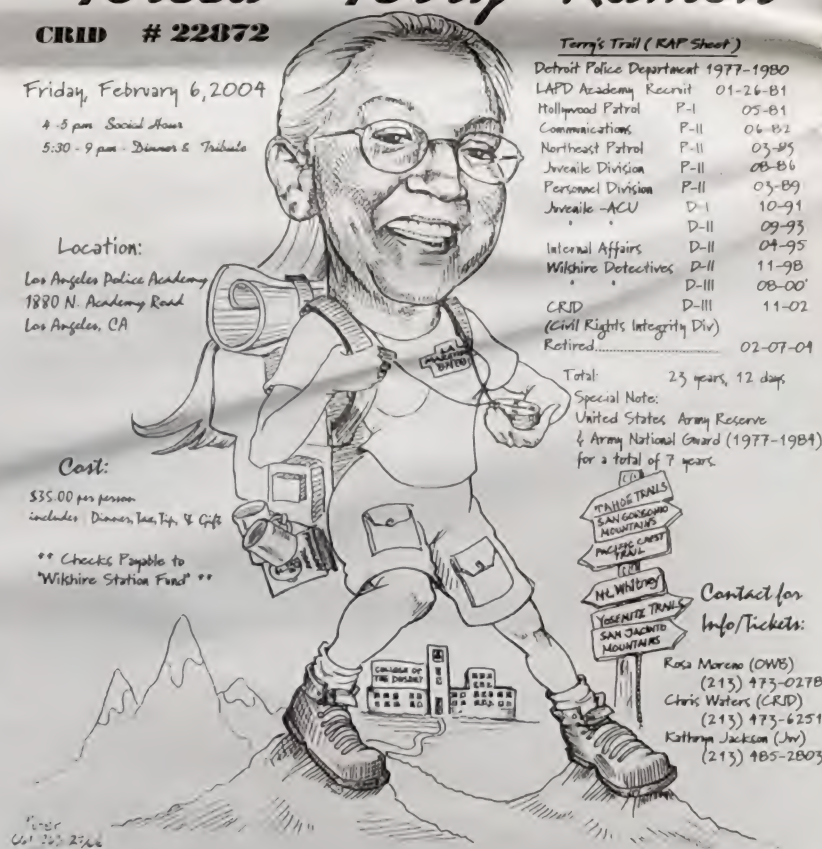 CRID # 22872
Friday, February 6, 2004
4-5 pm Social Hour
5:30 - 9 pm - Dinner & Tribute
Location:
Los Angeles Police Academy
1880 N. Academy Road
Los Angeles, CA
Cost:
$35.00 per person
includes Dinner, Tax, Tip, & Gift
** Checks Payable to
"Wilshire Station Fund" **
Terry's Trail (RAP Sheet)
Detroit Police Department 1977-1980
LAPD Academy Recruit 01-26-81
Hollywood Patrol P-I 05-81
Communications P-II 06-82
Northeast Patrol P-II 03-85
Juvenile Division P-II 08-86
Personnel Division P-II 03-89
Juvenile -ACU D-I 10-91
" D-II 09-93
Internal Affairs D-II 04-95
Wilshire Detectives D-II 11-98
" " D-III 08-00'
CRID D-III 11-02
(Civil Rights Integrity Div)
Retired.................... 02-07-04
Total: 23 years, 12 days
Special Note:
United States Army Reserve
& Army National Guard (1977-1984)
for a total of 7 years.
LA
TAHOE TRAILS
SAN GORGONIO
MOUNTAINS
PACIFIC CREST
TRAIL
Mt. Whitney
YOSEMITE TRAILS
SAN JACINTO
MOUNTAINS
COLLEGE OF
THE DESERT
Contact for
Info/Tickets:
Rosa Moreno (OWB)
(213) 473-0278
Chris Waters (CRID)
(213) 473-6251
Kathryn Jackson (Juv)
(213) 485-2803